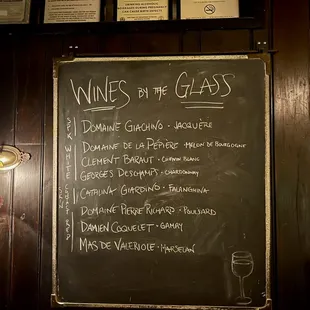 WINES BY THE GLASS
DOMAINE GIACHINO · JACQUÈRE
DOMAINE DE LA PÉPIÈRE · MELON DE BOURGOGNE
CLEMENT BARAUT · CHENIN BLANC
GEORGES DESCHAMPS · CHARDONNAY
CATALINA GIARDINO · FALANGHINA
DOMAINE PIERRE RICHARD · POULSARD
DAMIEN COQUELET · GAMAY
MAS DE VALERIOLE · MARSELAN